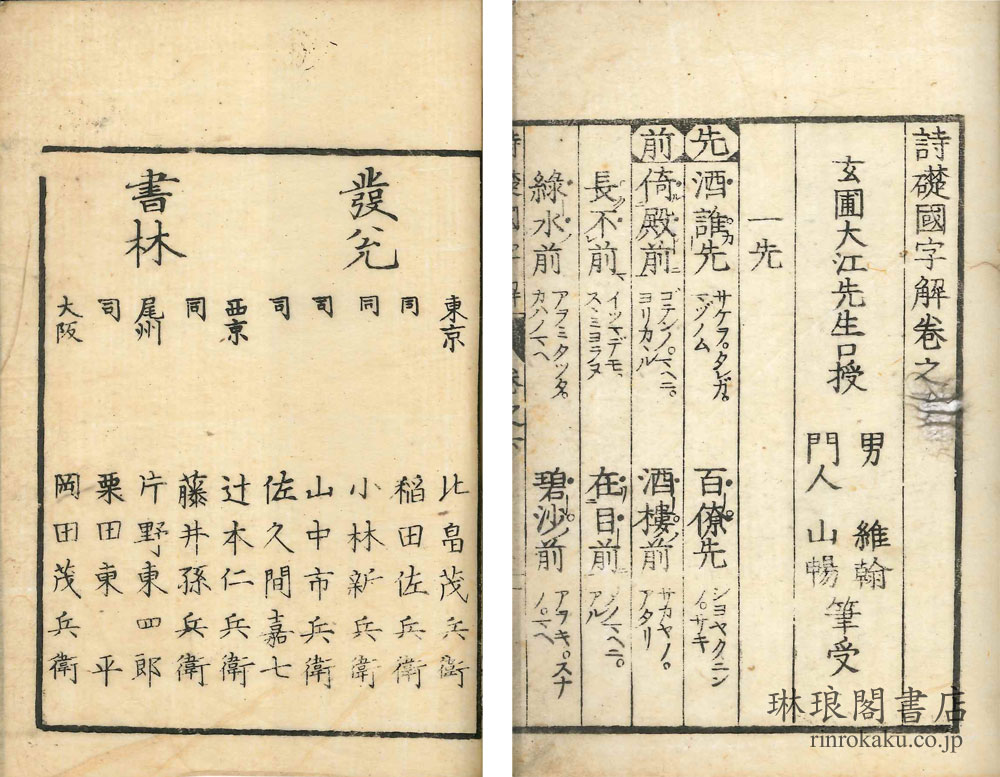 詩礎國字解卷之
玄圃大江先生口授
男 維翰
門人 山暢
筆受
一先
先
酒誰先
サケヲ。タレガ。
マヅノム
百僚先
シヨヤクニン
ノ。サキ
前
倚殿前
ゴテンノ。マヘニ。
ヨリカヽル
酒樓前
サカヤノ。
アタリ
長不前
イツマデモ、
スヽミヨラヌ
在目前
メノマヘニ。
アル
綠水前
アヲミタツタ。
カハノマヘ
碧沙前
アヲキ。スナ
ノ。マヘ
發兌
書林
東京 北畠茂兵衛
同 稲田佐兵衛
同 小林新兵衛
司 山中市兵衛
司 佐久間嘉七
西京 辻本仁兵衛
同 藤井孫兵衛
尾州 片野東四郎
司 栗田東平
大阪 岡田茂兵衛
琳琅閣書店
rinrokaku.co.jp